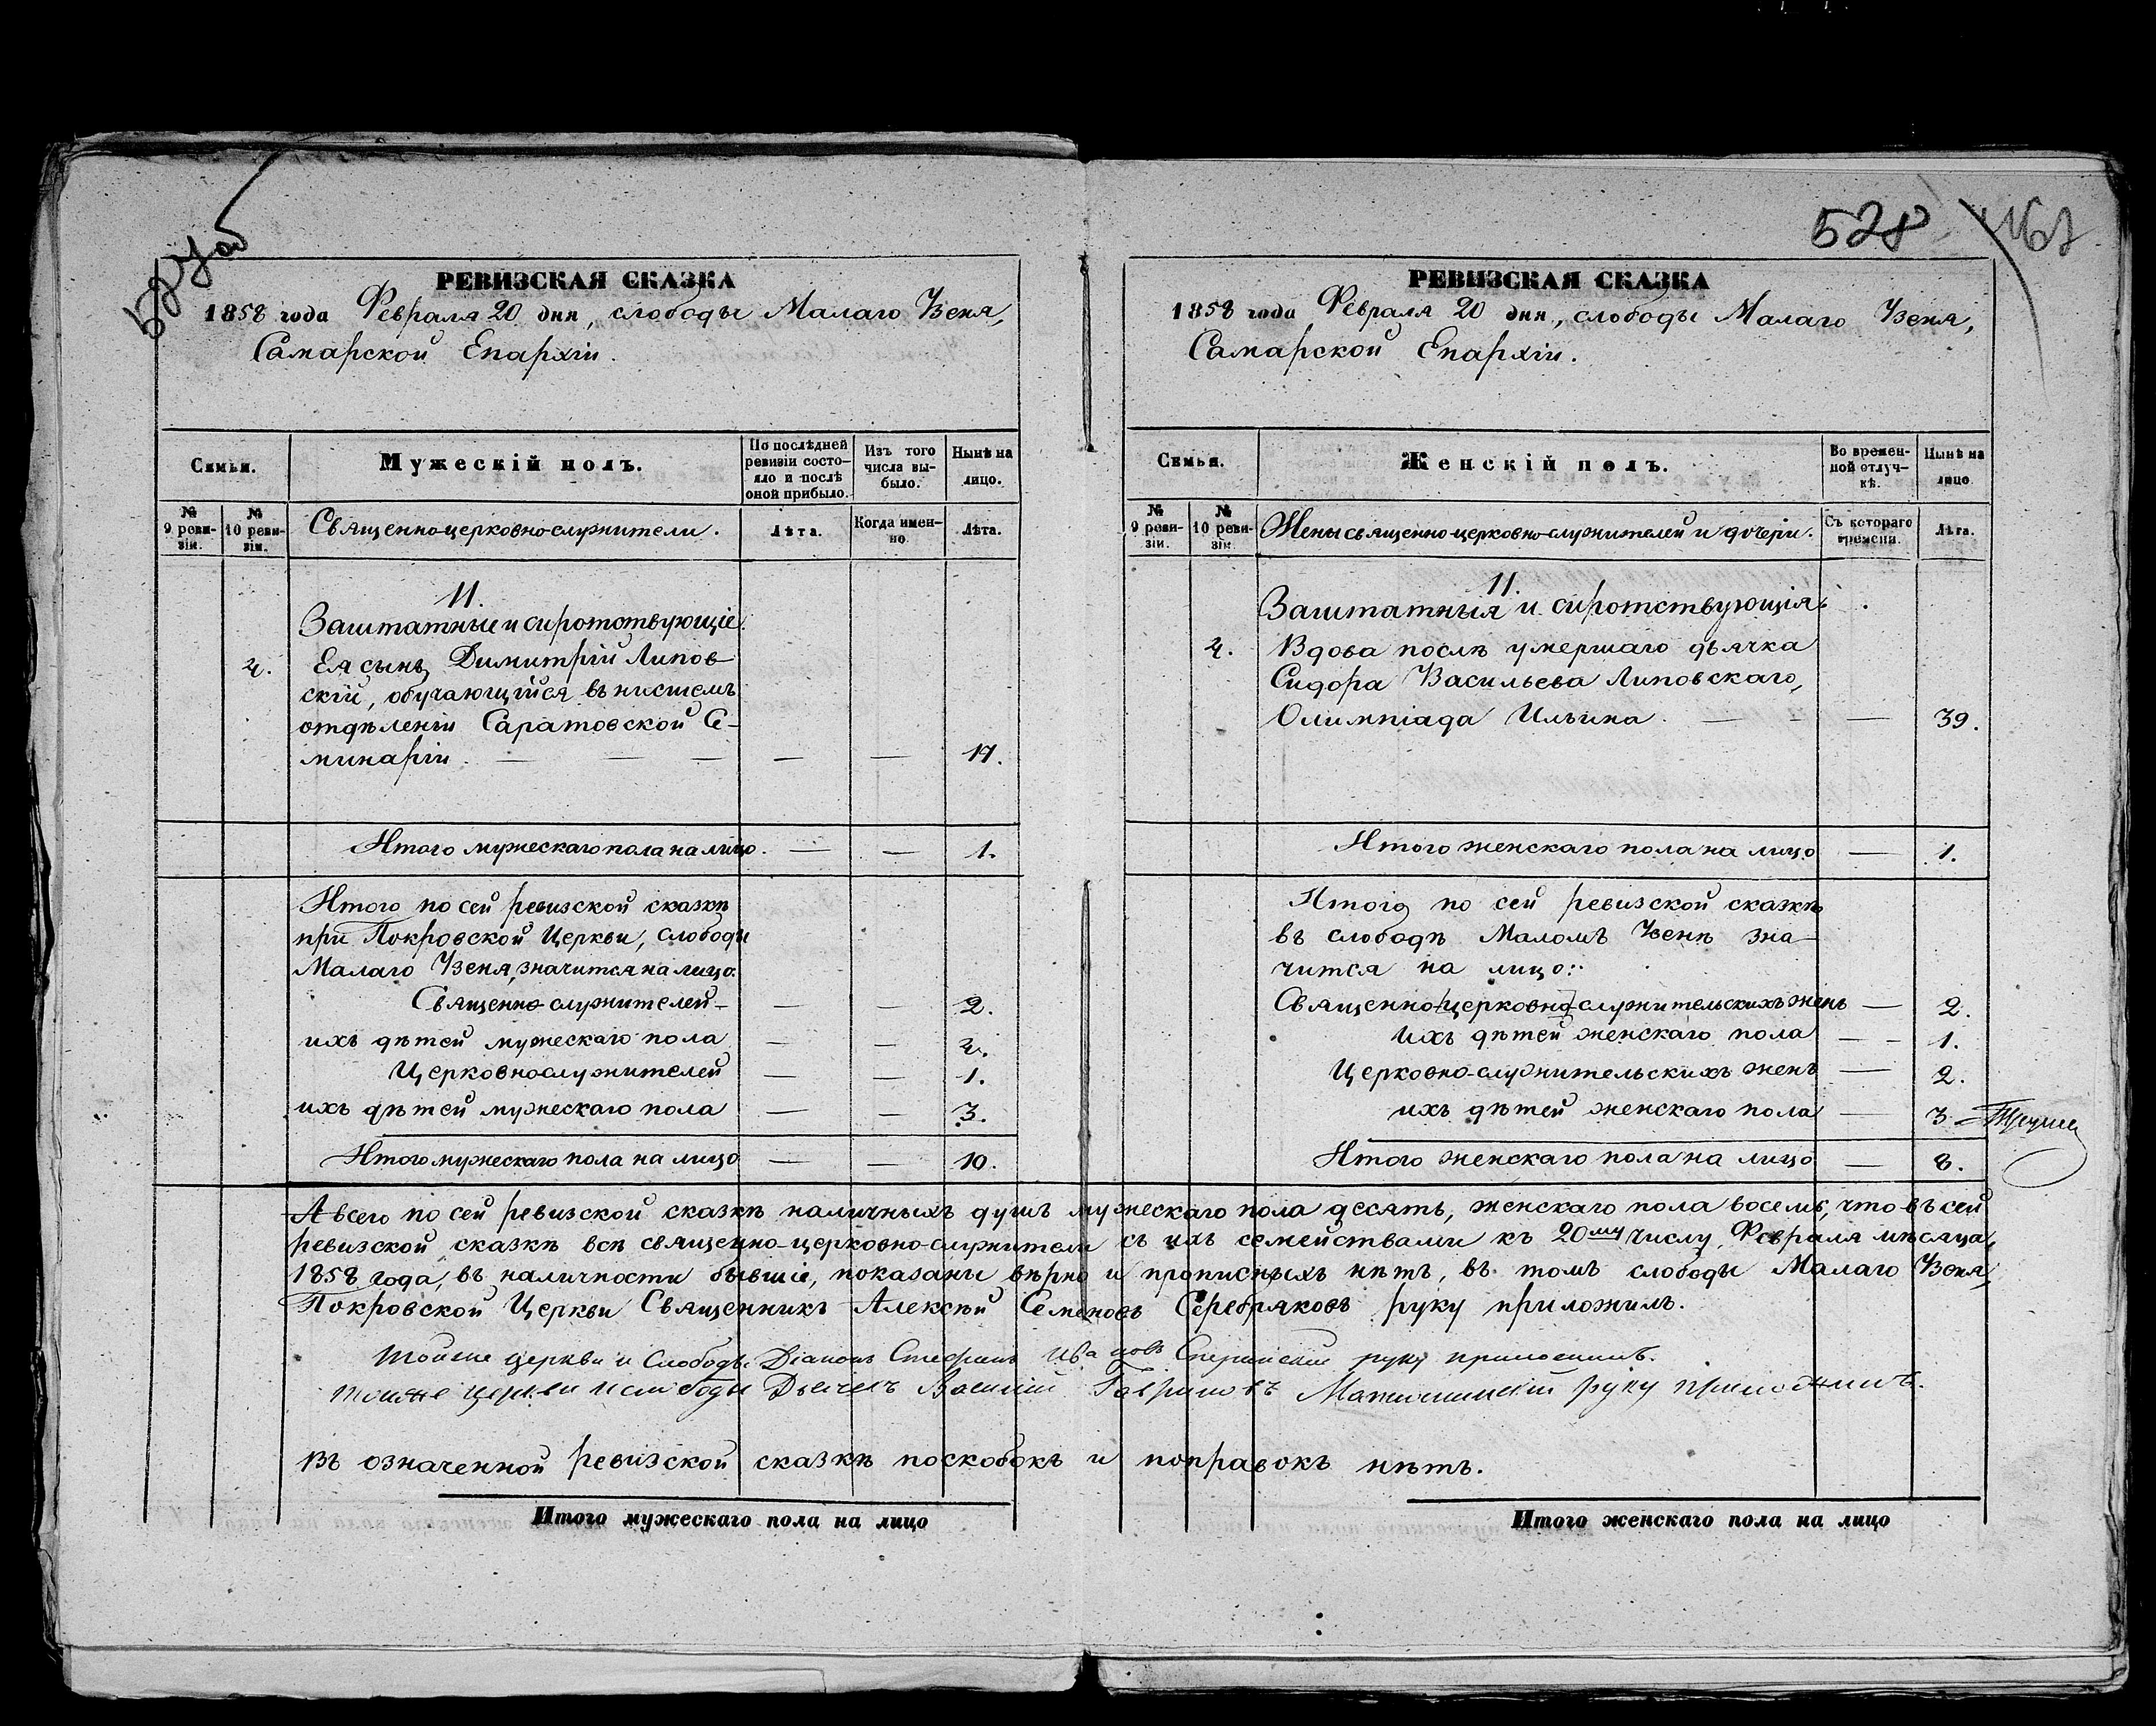 РЕВИЗСКАЯ СКАЗКА
1858 года Февраля 20 дня, слободы Малаго Узеня,
Самарской Епархіи.
Семьи.
Мужескій полъ.
По послѣдней ревизіи состояло и послѣ оной прибыло.
Изъ того числа выбыло.
Нынѣ на лицо.
№ 9 ревизіи.
№ 10 ревизіи.
Священно-церковно-служители.
Лѣта.
Когда именно.
Лѣта.
11.
Заштатные и сиротствующіе.
4. Ея сынъ Димитрій Липов-
скій, обучающійся въ нисшемъ
отдѣленіи Саратовской Се-
минаріи. — — — — — 17.
Итого мужескаго пола на лицо. — — 1.
Итого по сей ревизской сказкѣ
при Покровской Церкви, слободы
Малаго Узеня, значится на лицо:
Священно-служителей — — — 2.
ихъ дѣтей мужескаго пола — — 4.
Церковнослужителей — — 1.
ихъ дѣтей мужескаго пола — — 3.
Итого мужескаго пола на лицо — — 10.
528
РЕВИЗСКАЯ СКАЗКА
1858 года Февраля 20 дня, слободы Малаго Узеня,
Самарской Епархіи.
Семьи.
Женскій полъ.
Во временной отлучкѣ.
Нынѣ на лицо
№ 9 ревизіи.
№ 10 ревизіи.
Жены священно-церковно-служителей и дочери.
Съ котораго времени.
Лѣта.
11.
Заштатныя и сиротствующія.
4. Вдова послѣ умершаго дьячка
Сидора Васильева Липовскаго,
Олимпіада Ильина. — - — 39.
Итого женскаго пола на лицо — 1.
Итого по сей ревизской сказкѣ
въ слободѣ Маломъ Узенѣ зна-
чится на лицо:
Священно-[церковно]-служительскихъ женъ — 2.
ихъ дѣтей женскаго пола — - 1.
Церковно-служительскихъ женъ — 2.
ихъ дѣтей женскаго пола — 3.
Итого женскаго пола на лицо — 8.
А всего по сей ревизской сказкѣ наличныхъ душъ мужескаго пола десять, женскаго пола восемь, что въ сей
ревизской сказкѣ всѣ священно-церковно-служители съ ихъ семействами къ 20му числу Февраля мѣсяца,
1858 года, въ наличности бывшіе, показаны вѣрно и прописныхъ нѣтъ, въ томъ слободы Малаго Узеня,
Покровской Церкви Священникъ Алексѣй Семеновъ Серебряковъ руку приложилъ.
Тойже церкви и Слободы Діаконъ Стефанъ Ивановъ руку приложилъ.
Тойже церкви и слободы Дьячекъ Василій Гавриловъ руку приложилъ.
Въ означенной ревизской сказкѣ поскобокъ и поправокъ нѣтъ.
Итого мужескаго пола на лицо
Итого женскаго пола на лицо